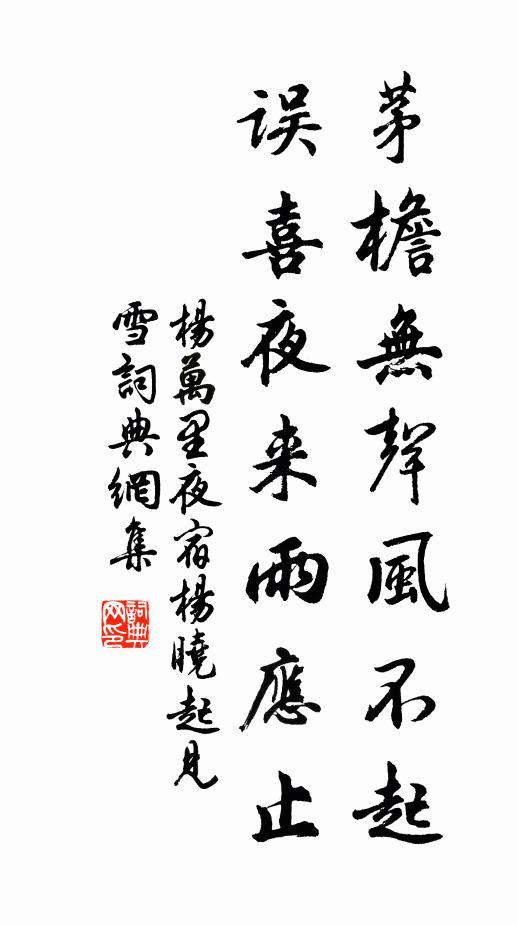 茅檐無聲風不起
误喜夜来雨應止
楊萬里夜宿楊曉起見
雪詞典網集
詞典
网印